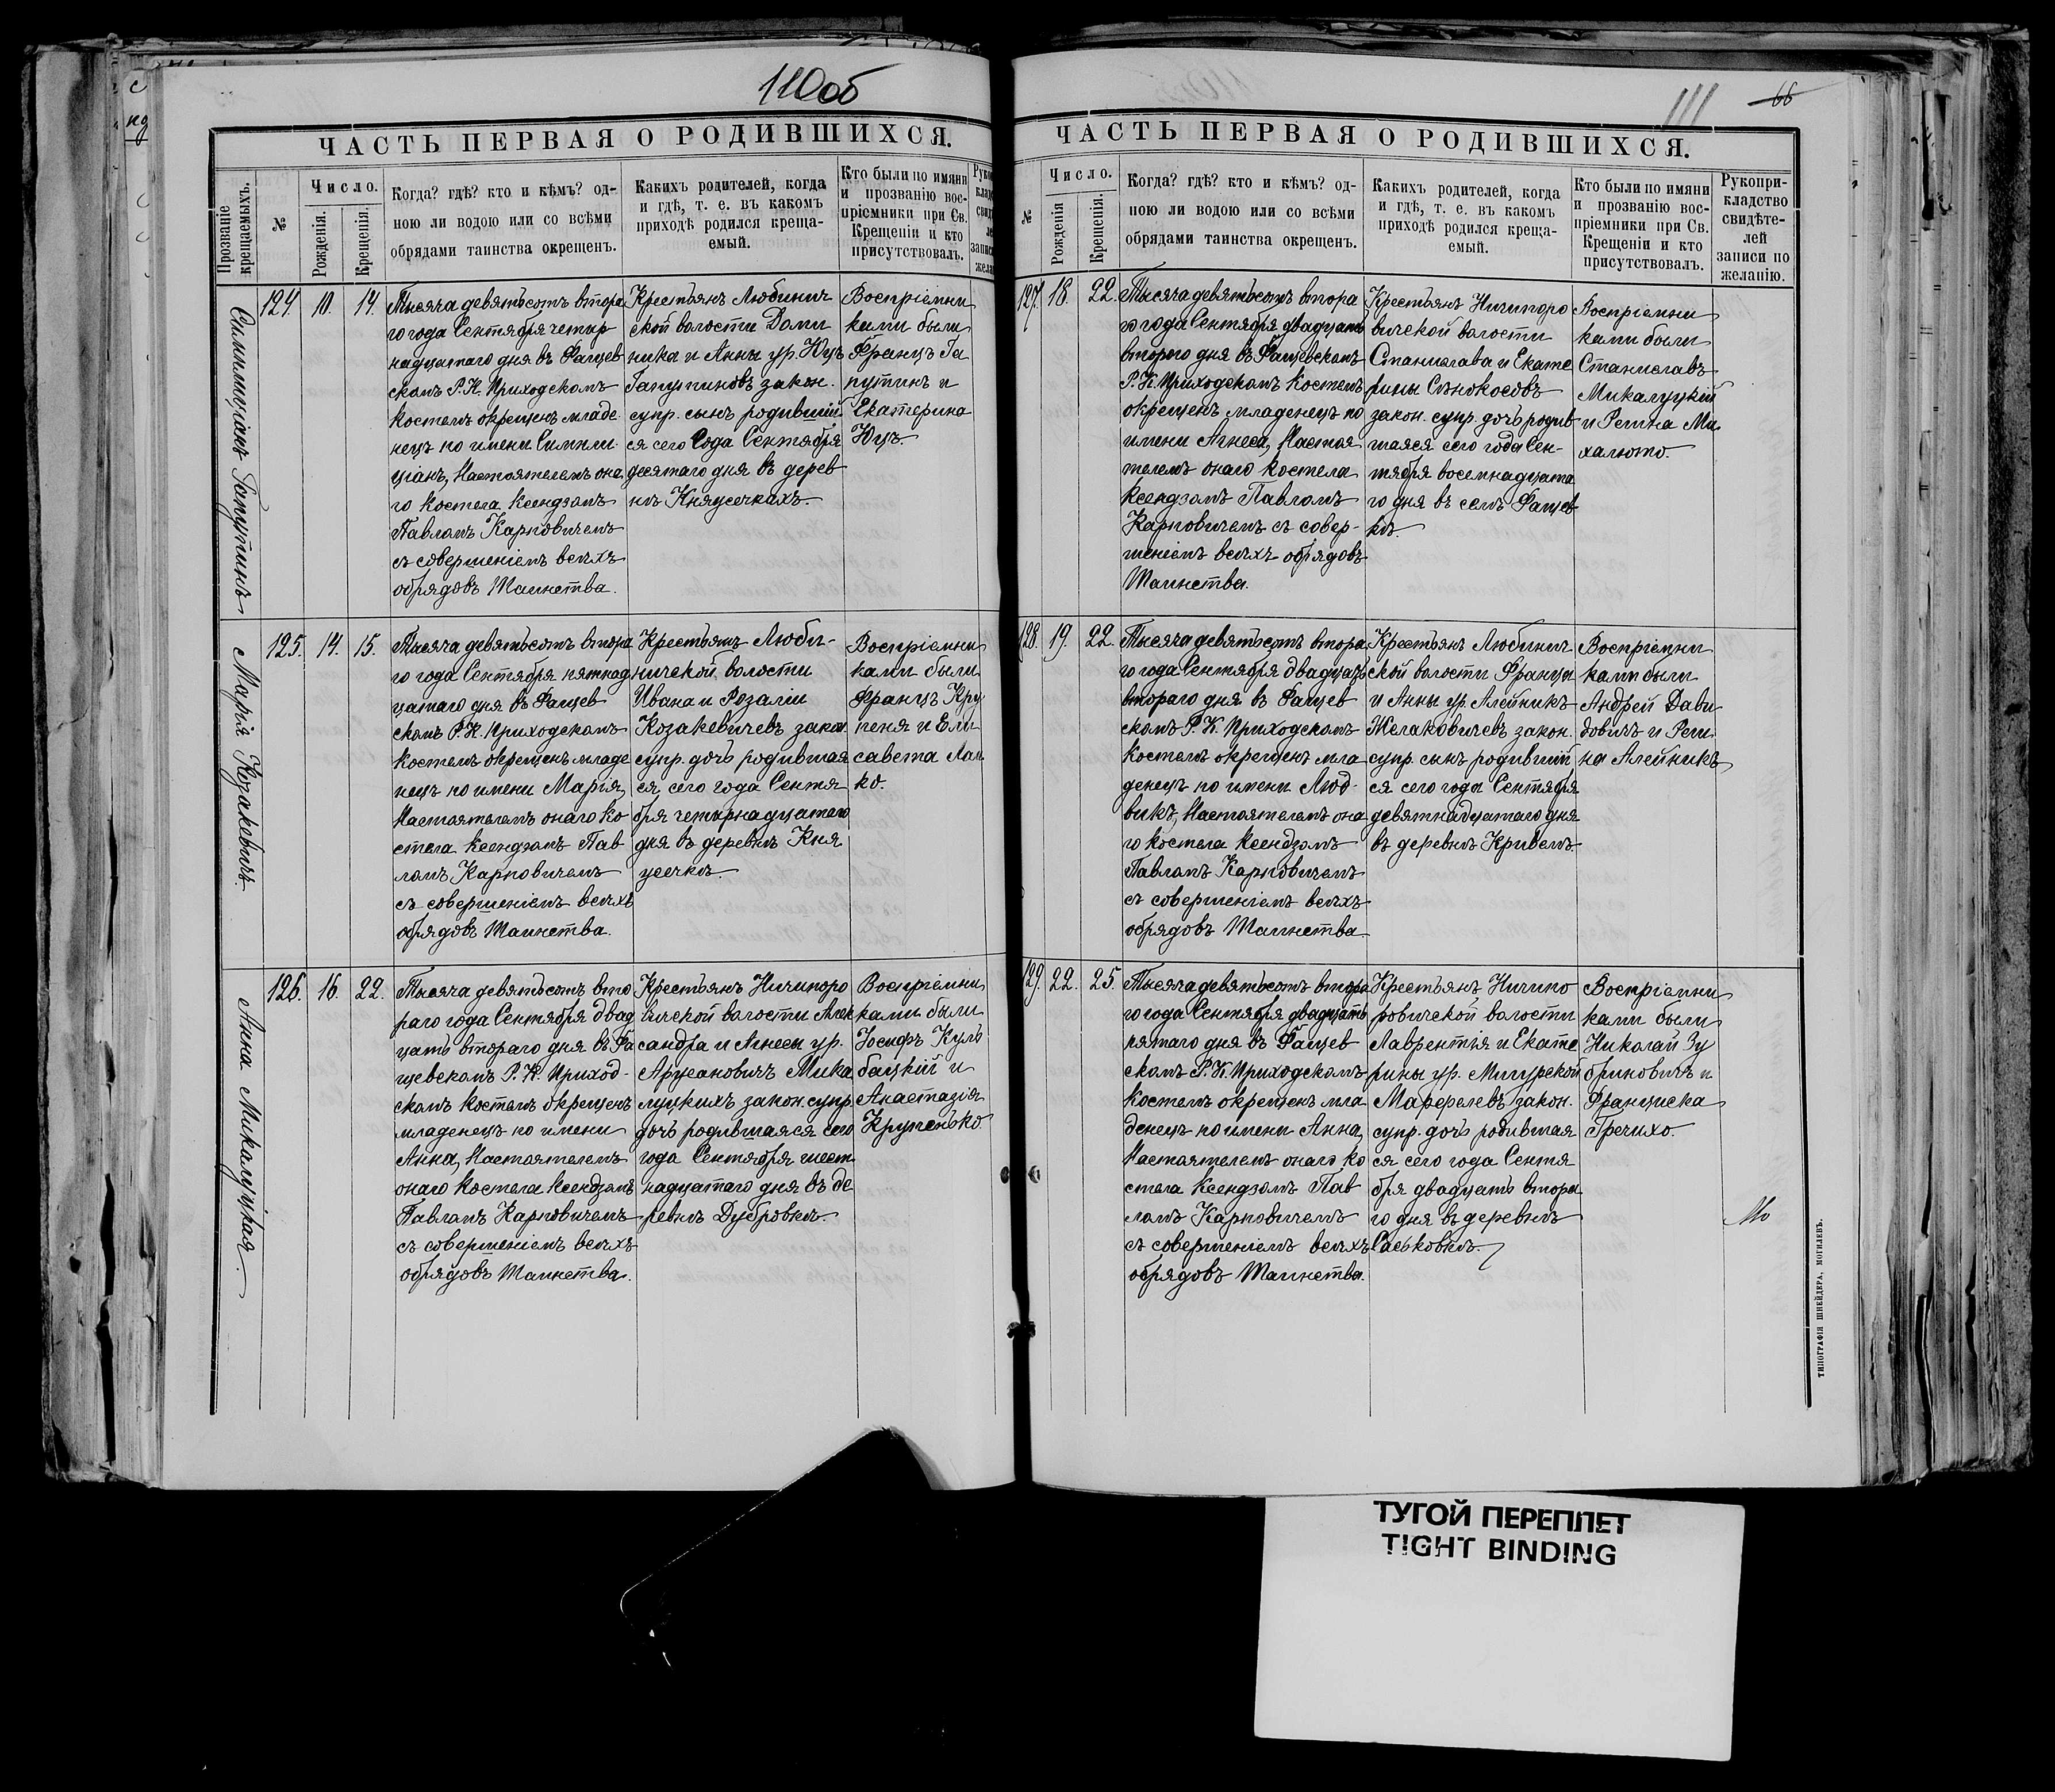 110об
ЧАСТЬ ПЕРВАЯ О РОДИВШИХСЯ.
Прозваніе крещаемыхъ.
№
Число.
Рожденія.
Крещенія.
Когда? гдѣ? кто и кѣмъ? од-
ною ли водою или со всѣми
обрядами таинства окрещенъ.
Какихъ родителей, когда
и гдѣ, т. е. въ какомъ
приходѣ родился креща-
емый.
Кто были по имяни
и прозванію вос-
пріемники при Св.
Крещеніи и кто
присутствовалъ.
124. 10. 14.
Тысяча девятьсотъ втора
го года Сентября четыр
надцатаго дня въ Фащев
скомъ Р. К. Приходскомъ
костелѣ окрещенъ младе
нецъ по имени
Настоятелемъ она
го костела Ксендзомъ
Павломъ Карповичемъ
съ совершеніемъ всѣхъ
обрядовъ Таинства.
Крестьянъ Любинич
ской волости Доми
ника и Анны ур. Юцъ
Гапутиновъ закон.
супр. сынъ родившій
ся сего Года Сентября
десятаго дня въ дерев
нѣ Княусечкахъ.
Воспріемни
ками были
Францъ Га
путинъ и
Екатерина
Юцъ.
Марія Козакевичъ.
125. 14. 15.
Тысяча девятьсотъ втора
го года Сентября пятнад
цатаго дня въ Фащев
скомъ Р. К. Приходскомъ
костелѣ окрещенъ младе
нецъ по имени Марія,
Настоятелемъ онаго ко
стела Ксендзомъ Пав
ломъ Карповичемъ
съ совершеніемъ всѣхъ
обрядовъ Таинства.
Крестьянъ Люби-
ничской волости
Ивана и Розаліи
Козакевичевъ закон.
супр. дочь родившая
ся, сего года Сентя
бря четырнадцатаго
дня въ деревнѣ Кня
усечкѣ.
Воспріемни
ками были
Францъ Кру
пеня и Ели
савета
ко.
Анна Микалуцкая.
126. 16. 22.
Тысяча девятьсотъ вто
раго года Сентября двад
цать втораго дня въ Фа
щевскомъ Р. К. Приход-
скомъ костелѣ окрещенъ
младенецъ по имени
Анна, Настоятелемъ
онаго костела Ксендзомъ
Павломъ Карповичемъ
съ совершеніемъ всѣхъ
обрядовъ Таинства.
Крестьянъ Ничипоро
вичской волости Алек
сандра и Агнесы ур.
Арцсановичъ Мика
луцкихъ закон. супр.
дочь родившаяся сего
года Сентября шест
надцатаго дня въ де
ревнѣ Дубровкѣ.
Воспріемни
ками были
Іосифъ Куль
бацкій и
Анастазія
Крупенько.
111 66
ЧАСТЬ ПЕРВАЯ О РОДИВШИХСЯ.
№
Число.
Рожденія
Крещенія.
Когда? гдѣ? кто и кѣмъ? од-
ною ли водою или со всѣми
обрядами таинства окрещенъ.
Какихъ родителей, когда
и гдѣ, т. е. въ какомъ
приходѣ родился креща-
емый.
Кто были по имяни
и прозванію вос-
пріемники при Св.
Крещеніи и кто
присутствовалъ.
Рукопри-
кладство
свидѣте-
лей
записи по
желанію.
127. 18. 22.
Тысяча девятьсотъ втора
го года Сентября двадцать
второго дня въ Фащевскомъ
Р. К. Приходскомъ Костелѣ
окрещенъ младенецъ по
имени Агнеса, Настоя
телемъ онаго костела
Ксендзомъ Павломъ
Карповичемъ съ совер-
шеніемъ всѣхъ обрядовъ
Таинства.
Крестьянъ Ничипоро
вичской волости
Станислава и Екате
рины Сѣнокосовъ
закон. супр. дочь родив
шаяся сего года Сен-
тября восемнадцата
го дня въ селѣ Фащев
кѣ.
Воспріемни
ками были
Станиславъ
Микалуцкій
и Регина Ми
халюто.
128. 19. 22.
Тысяча девятьсотъ втора
го года Сентября двадцать
втораго дня въ Фащев
скомъ Р. К. Приходскомъ
Костелѣ окрещенъ мла
денецъ по имени Люд-
викъ, Настоятелемъ она
го костела Ксендзомъ
Павломъ Карповичемъ
съ совершеніемъ всѣхъ
обрядовъ Таинства.
Крестьянъ Любинич
ской волости Франца
и Анны ур. Алейникъ
Желаковичевъ закон.
супр. сынъ родившій
ся сего года Сентября
девятнадцатаго дня
въ деревнѣ Кривель.
Воспріемни
ками были
Андрей Дави
довичъ и Реги
на Алейникъ
129. 22. 25.
Тысяча девятьсотъ втора
го года Сентября двадцать
пятаго дня въ Фащев
скомъ Р. К. Приходскомъ
костелѣ окрещенъ мла
денецъ по имени Анна,
Настоятелемъ онаго ко
стела Ксендзомъ Пав
ломъ Карповичемъ
съ совершеніемъ всѣхъ
обрядовъ Таинства.
Крестьянъ Ничипо
ровичской волости
Лаврентія и Екате
рины ур. Мигурской
Марферевъ закон.
супр. дочь родившая
ся сего года Сентя
бря двадцать втора
го дня въ деревнѣ
Саськовкѣ.
Воспріемни
ками были
Николай Зу
бриновичъ и
Франциска
Гречихо.
ТИПОГРАФІЯ ШНЕЙДЕРА, МОГИЛЕВЪ.
ТУГОЙ ПЕРЕПЛЕТ
TIGHT BINDING